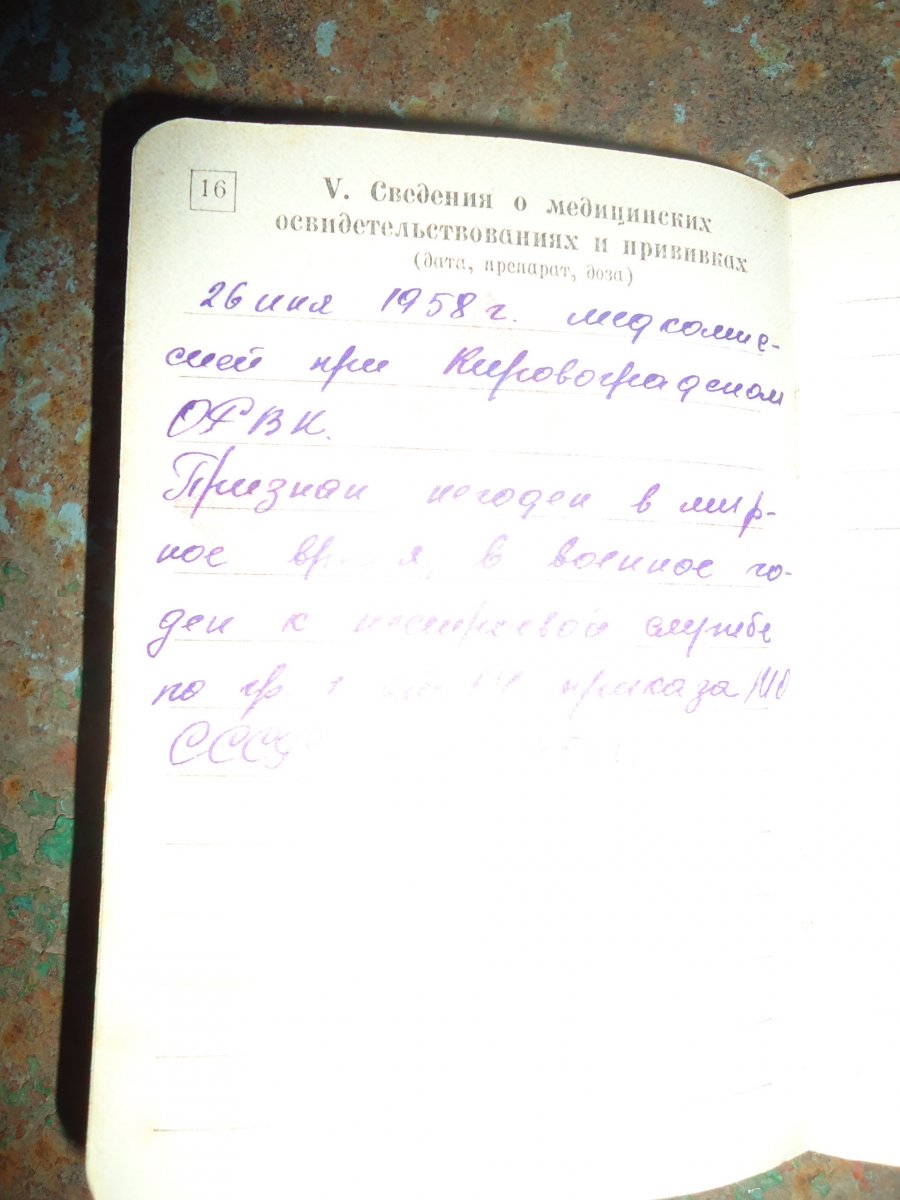 16
V. Сведения о медицинских
освидетельствованиях и прививках
(дата, препарат, доза)
26 1958 г. медкомис-
сией при Кировоградском
ОРВК.
Признан негоден в мир-
ное время, в военное го-
ден к нестроевой службе
по гр приказа МО
СССР